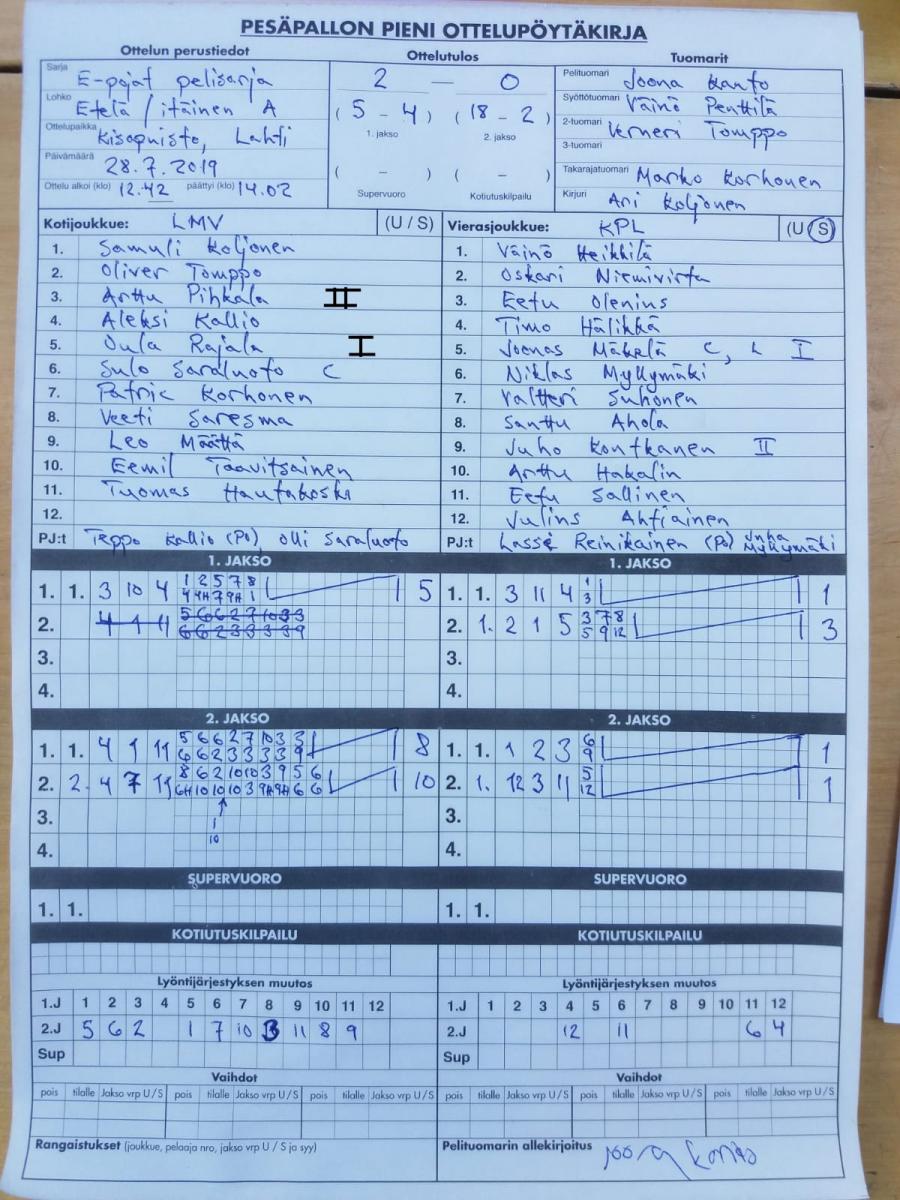 PESÄPALLON PIENI OTTELUPÖYTÄKIRJA
Ottelun perustiedot
Sarja E-pojat pelisarja
Lohko Etelä / itäinen A
Ottelupaikka Kisapuisto, Lahti
Päivämäärä 28.7.2019
Ottelu alkoi (klo) 12.42 päättyi (klo) 14.02
Ottelutulos
2 — 0
( 5 - 4 ) ( 18 - 2 )
1. jakso 2. jakso
( - ) ( - )
Supervuoro Kotiutuskilpailu
Tuomarit
Pelituomari Joona Kanto
Syöttötuomari Väinö Penttilä
2-tuomari Verneri Tomppo
3-tuomari
Takarajatuomari Marko Korhonen
Kirjuri Ari Koljonen
Kotijoukkue: LMV (U / S)
1. Samuli Koljonen
2. Oliver Tomppo
3. Arttu Pihkala II
4. Aleksi Kallio
5. Oula Rajala I
6. Sulo Saraluoto C
7. Patric Korhonen
8. Veeti Saresma
9. Leo Määttä
10. Eemil Taavitsainen
11. Tuomas Hautakoski
12.
PJ:t Teppo Kallio (PJ), Olli Saraluoto
Vierasjoukkue: KPL (U / S)
1. Väinö Heikkilä
2. Oskari Niemivirta
3. Eetu Olenius
4. Timo Hälikkä
5. Joonas Mäkelä C, L I
6. Niklas Myllymäki
7. Valtteri Suhonen
8. Santtu Ahola
9. Juho Kontkanen II
10. Arttu Hakalin
11. Eetu Sallinen
12. Julius Ahtiainen
PJ:t Lasse Reinikainen (PJ) Juha Myllymäki
1. JAKSO
1. 1. 3 10 4 1 2 5 7 8 1 5
4 4H 7 9H 1
2. 4 1 11 5 6 6 2 7 10 3 3
6 6 2 3 3 3 3 9
3.
4.
1. JAKSO
1. 1. 3 11 4 1 1 1
3
2. 1. 2 1 5 3 7 8 1 3
5 9 12
3.
4.
2. JAKSO
1. 1. 4 1 11 5 6 6 2 7 10 3 3 1 8
6 6 2 3 3 3 3 9
2. 2. 4 7 11 8 6 2 10 10 3 9 5 6 1 10
6H 10 10 10 3 9H 9H 6 6
3. 1
10
4.
2. JAKSO
1. 1. 1 2 3 6 1 1
9
2. 1. 12 3 11 5 1 1
12
3.
4.
SUPERVUORO
1. 1.
SUPERVUORO
1. 1.
KOTIUTUSKILPAILU
KOTIUTUSKILPAILU
Lyöntijärjestyksen muutos
1.J 1 2 3 4 5 6 7 8 9 10 11 12
2.J 5 6 2 1 7 10 3 11 8 9
Sup
Lyöntijärjestyksen muutos
1.J 1 2 3 4 5 6 7 8 9 10 11 12
2.J 12 11 6 4
Sup
Vaihdot
pois tilalle Jakso vrp U / S pois tilalle Jakso vrp U / S pois tilalle Jakso vrp U / S
Vaihdot
pois tilalle Jakso vrp U / S pois tilalle Jakso vrp U / S pois tilalle Jakso vrp U / S
Rangaistukset (joukkue, pelaaja nro, jakso vrp U / S ja syy)
Pelituomarin allekirjoitus